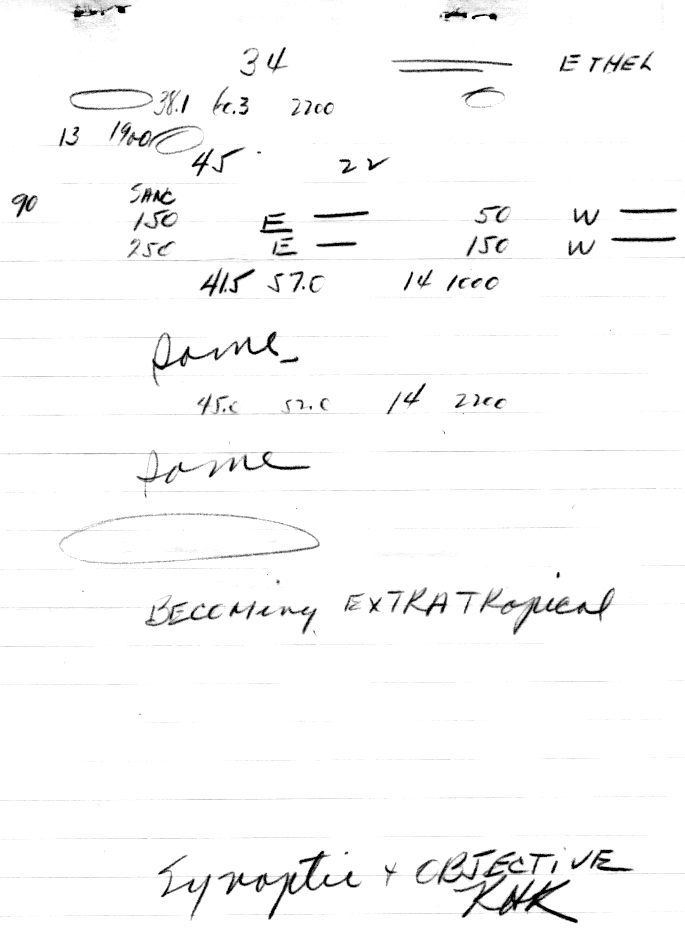 34 ETHEL
38.1 60.3 2200
13 1900
45 22
90 SAME
150 E — 50 W —
250 E — 150 W —
41.5 57.0 14 1000
Same
45.0 52.0 14 2200
Same
BECOMING EXTRATROPICAL
Synoptic + OBJECTIVE
KHK